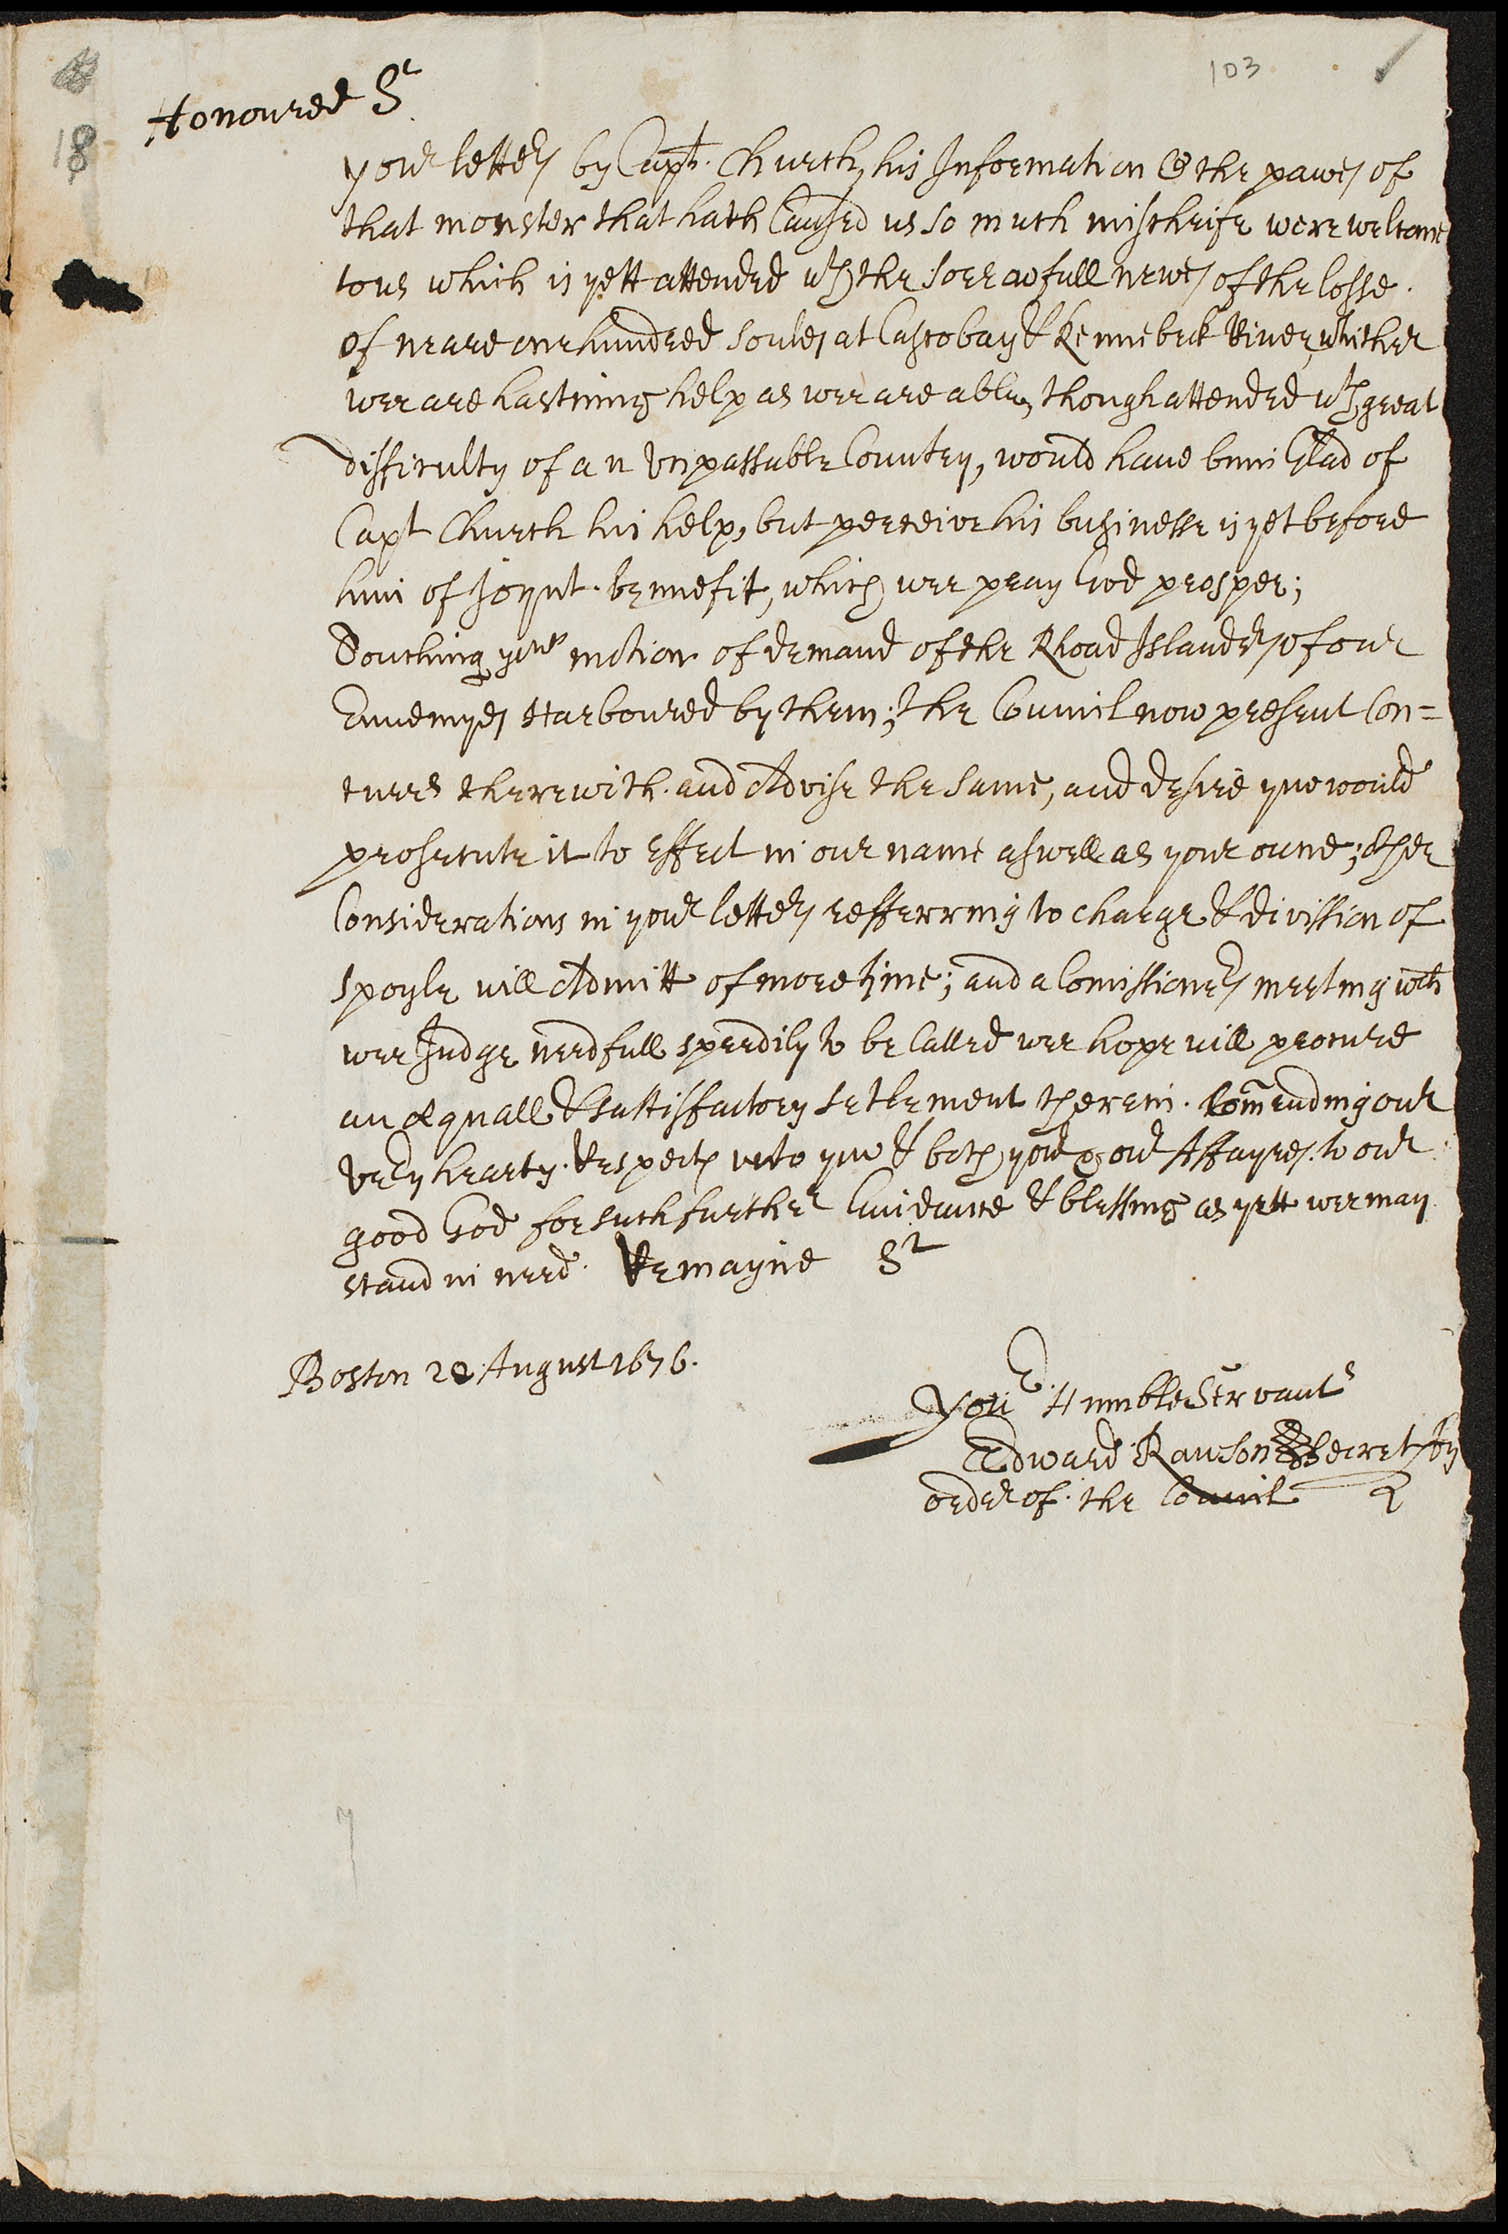 103
18
Honoured Sr
your letters by Capt. Church, his Information & the pawes of
that monster that hath Caused us so much mischeife were welcome
to us which is yett attended wth the sorrowfull newes of the losse
of neare one hundred soules at Cascobay & Kennebeck River, whither
wee are hastning help as wee are able, though attended wth great
difficulty of an vnpassable Country, would have bein Glad of
Capt Church his help, but perceive his businesse is yet before
him of Joynt bennefit, which wee pray God prosper;
Touching your motion of demand of the Rhoad Islanders of our
Ennemyes Harboured by them; The Council now present Con=
curs therewith and Advise the same, and desire you would
prosecute it to effect in our name aswell as your owne; other
Considerations in your letters refferring to charge & division of
spoyle will Admitt of more time; and a Comissioners meeting wch
wee Judge needfull speedily to be Called wee hope will procure
an æquall & sattisfactory setlement therein. Comending our
very hearty Respects vnto you & both your & our Affayres to our
good God for such further Guidance & blessing as yett wee may
stand in need. Remayne Sr
Boston 20 August 1676.
Your Humble Servant
Edward Rawson Secret by
order of the Council